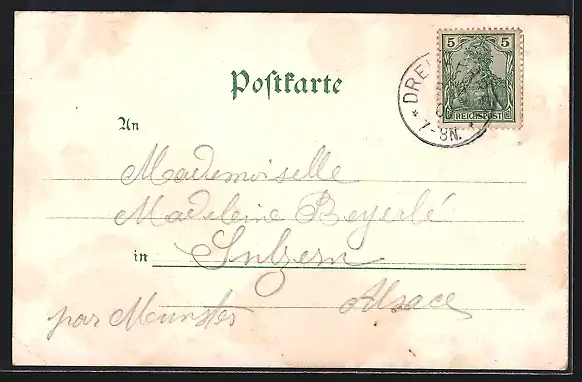 5 5
REICHSPOST
DRE
7-8N.
Postkarte
An
Mademoiselle
Madeleine Beyerlé
in Sulzern
Alsace
par Munster